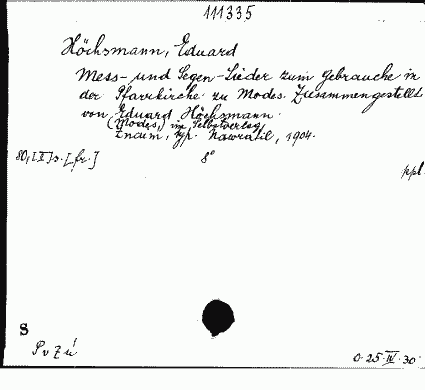 111335
Höchsmann, Eduard
Mess- und Segen-Lieder zum Gebrauche in
der Pfarrkirche zu Modes. Zusammengestellt
von Eduard Höchsmann.
(Modes,) im Selbstverlag,
Znaim, typ. Nawratil, 1904.
80, [I] s. [fr.] 8°
ppl.
S
0.25.IV.30